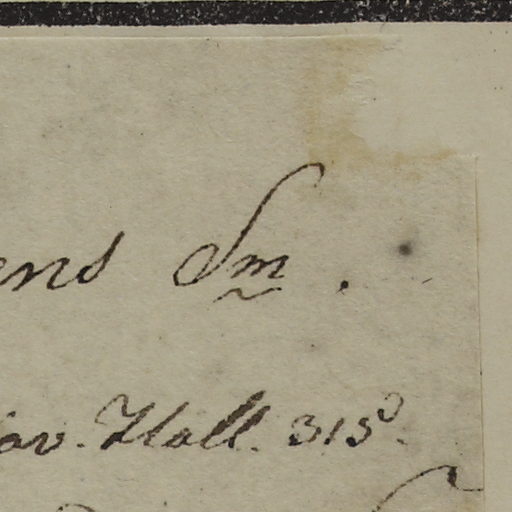 ens Sm.
Nov. Holl. 315